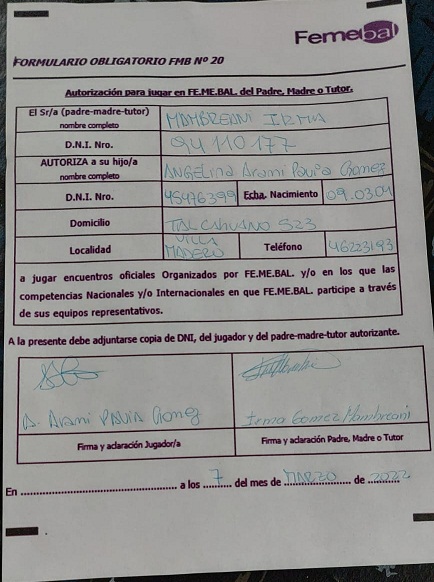 Femebal
FORMULARIO OBLIGATORIO FMB Nº 20
Autorización para jugar en FE.ME.BAL. del Padre, Madre o Tutor.
El Sr/a (padre-madre-tutor) MAMBREANI IRMA
nombre completo
D.N.I. Nro. 94110177
AUTORIZA a su hijo/a ANGELINA Arami PAVIA Gomez
nombre completo
D.N.I. Nro. 45476399 Fcha. Nacimiento 09.0304
Domicilio TALCAHUANO 523
Localidad VILLA MADERO Teléfono 46223193
a jugar encuentros oficiales Organizados por FE.ME.BAL. y/o en los que las
competencias Nacionales y/o Internacionales en que FE.ME.BAL. participe a través
de sus equipos representativos.
A la presente debe adjuntarse copia de DNI, del jugador y del padre-madre-tutor autorizante.
A. Arami PAVIA Gomez Irma Gomez Mambreani
Firma y aclaración Jugador/a Firma y aclaración Padre, Madre o Tutor
En ............ a los 7 del mes de MARZO de 2022